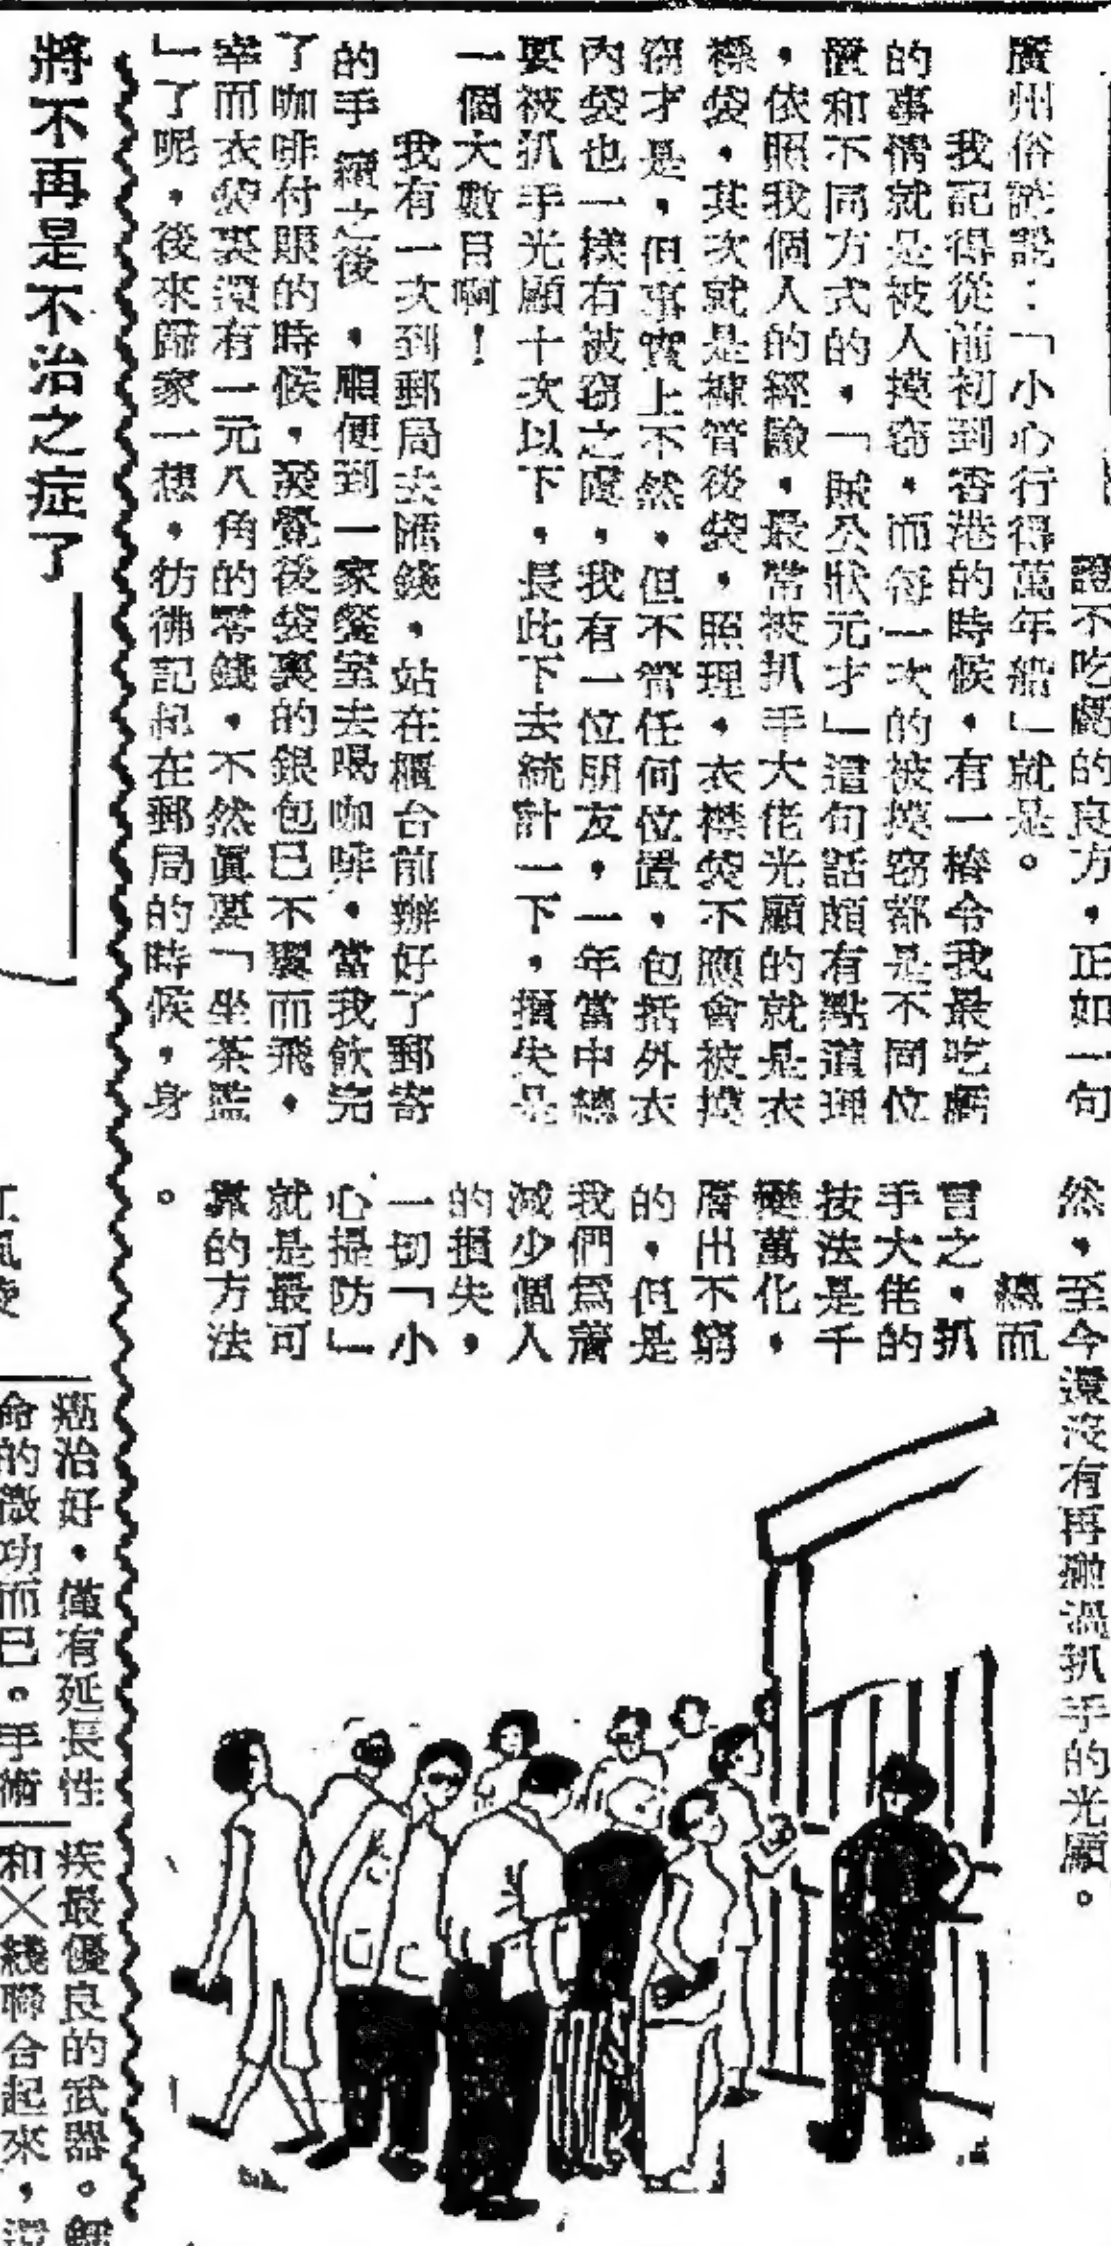 證不吃虧的良方，正如一句
廣州俗諺說：「小心行得萬年船」就是。
我記得從前初到香港的時候，有一樁令我最吃虧
的事情就是被人摸竊，而每一次的被摸竊都是不同位
置和不同方式的，「賊公狀元才」這句話頗有點道理
，依照我個人的經驗，最常被扒手大佬光顧的就是衣
襟袋，其次就是褲管後袋，照理，衣襟袋不應會被摸
竊才是，但事實上不然，但不管任何位置，包括外衣
內袋也一樣有被竊之虞，我有一位朋友，一年當中總
要被扒手光顧十次以下，長此下去統計一下，損失是
一個大數目啊！
我有一次到郵局去匯錢，站在櫃台前辦好了郵寄
的手續之後，順便到一家餐室去喝咖啡，當我飲完
了咖啡付賬的時候，發覺後袋裏的銀包已不翼而飛，
幸而衣袋裏還有一元八角的零錢，不然眞要「坐茶監
」了呢，後來歸家一想，彷彿記起在郵局的時候，身
然，至今還沒有再遭過扒手的光顧。
總而
言之，扒
手大佬的
技法是千
變萬化，
層出不窮
的，但是
我們爲着
減少個人
的損失，
一切「小
心提防」
就是最可
靠的方法
。
將不再是不治之症了
癌治好，僅有延長性
命的微功而已。手術
疾最優良的武器。
和X綫聯合起來，